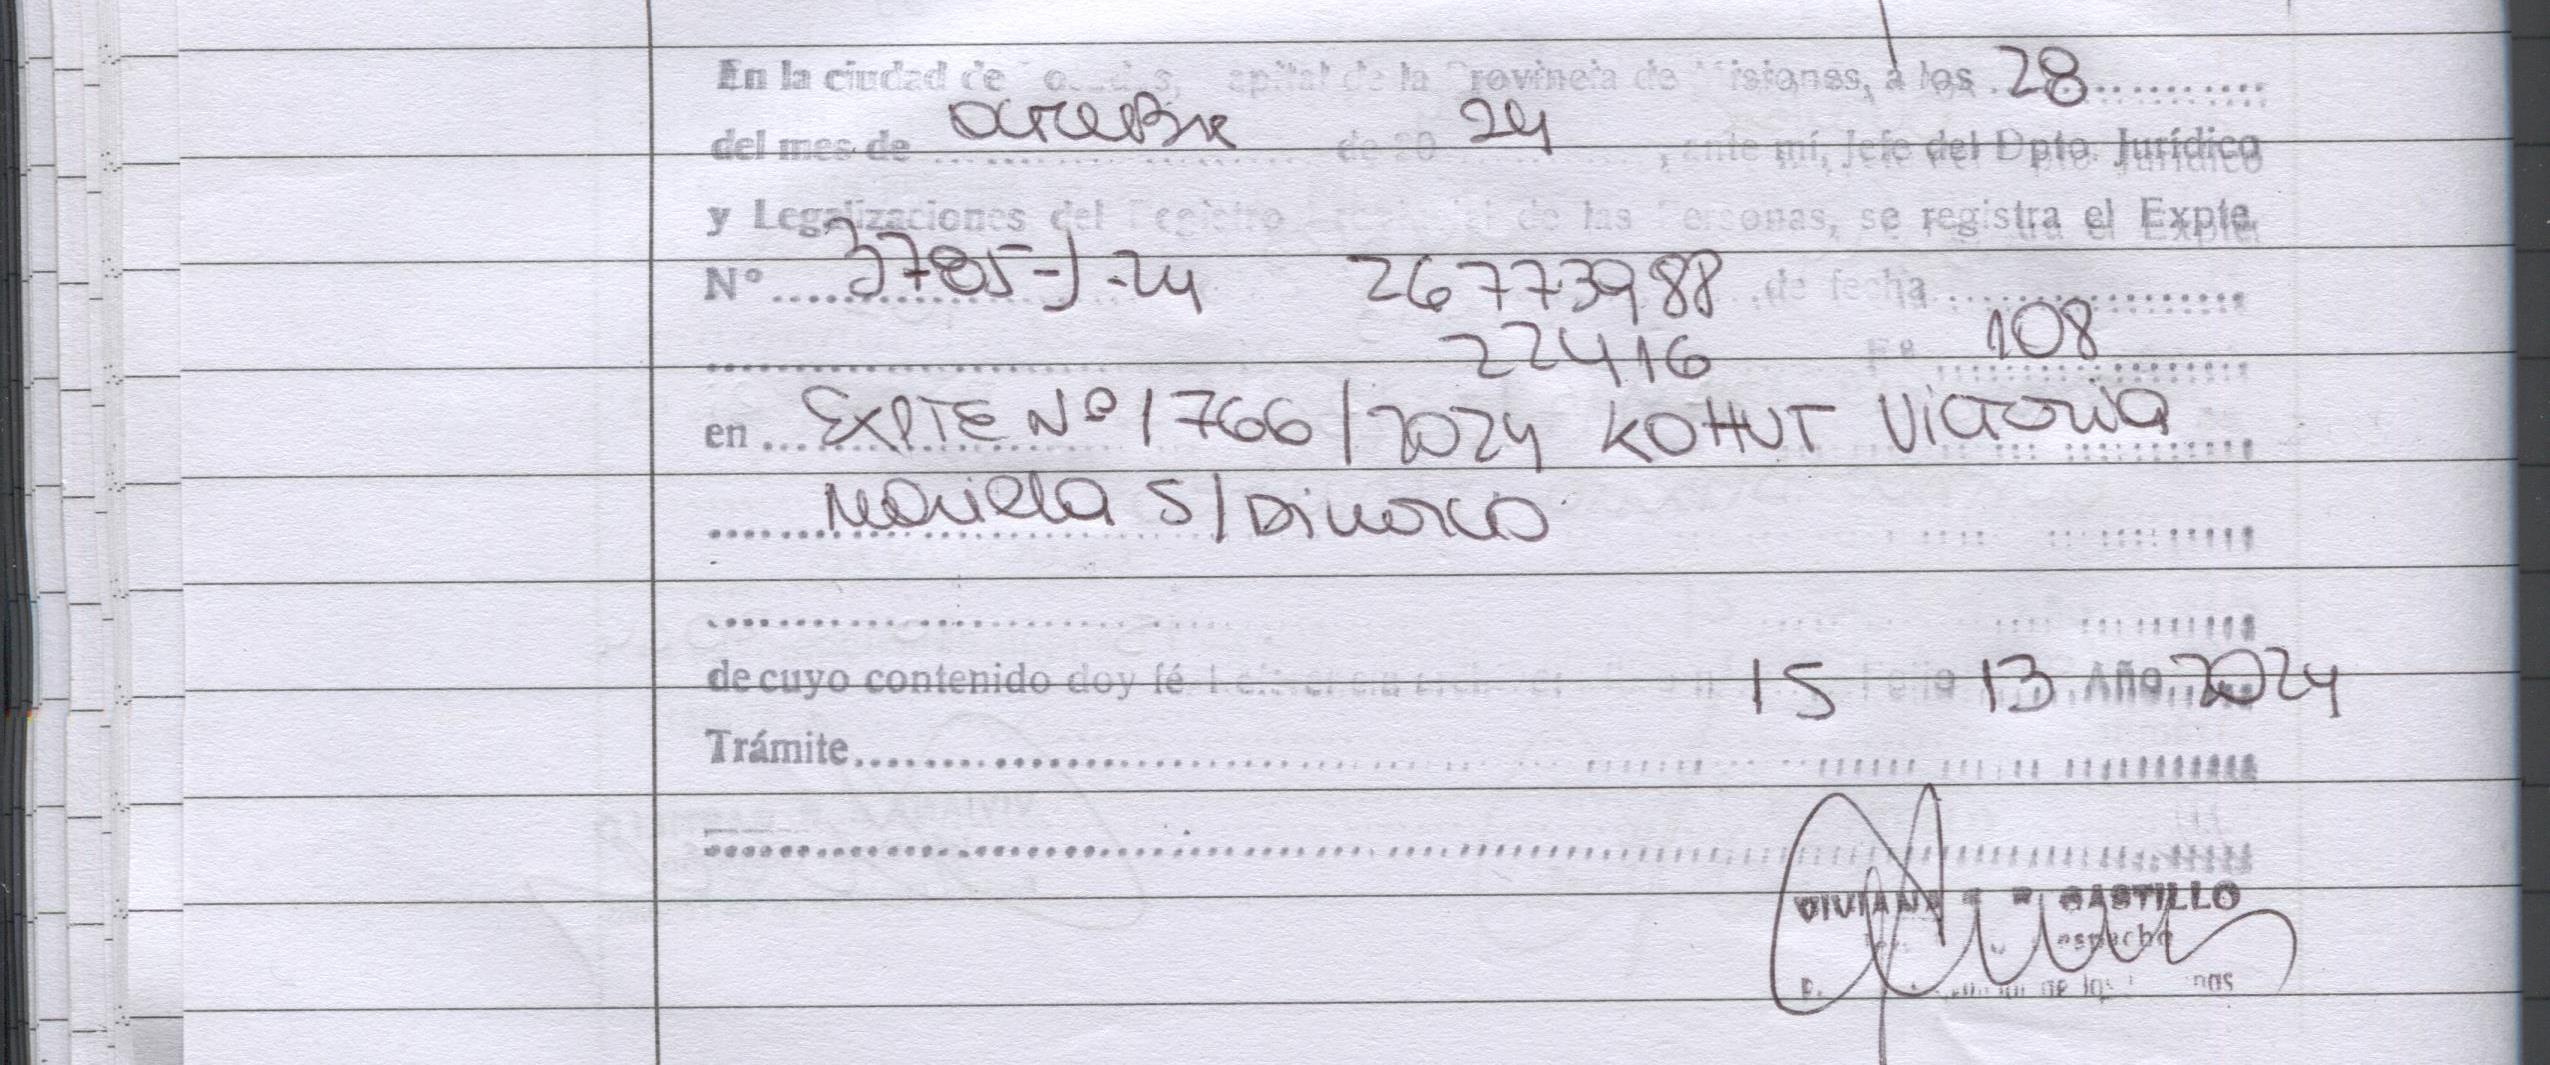 En la ciudad de Posadas, Capital de la Provincia de Misiones, a los 28
del mes de octubre de 20 24, ante mí, Jefe del Dpto. Jurídico
y Legalizaciones del Registro Provincial de las Personas, se registra el Expte.
Nº 3785-J-24 26773988 de fecha
22416 Fº 108
en EXPTE Nº 1766/2024 KOHUT Victoria
Mariela S/Divorcio
de cuyo contenido doy fé. 15 Folio 13 Año 2024
Trámite
VIVIANA CASTILLO
Despacho
de las Personas